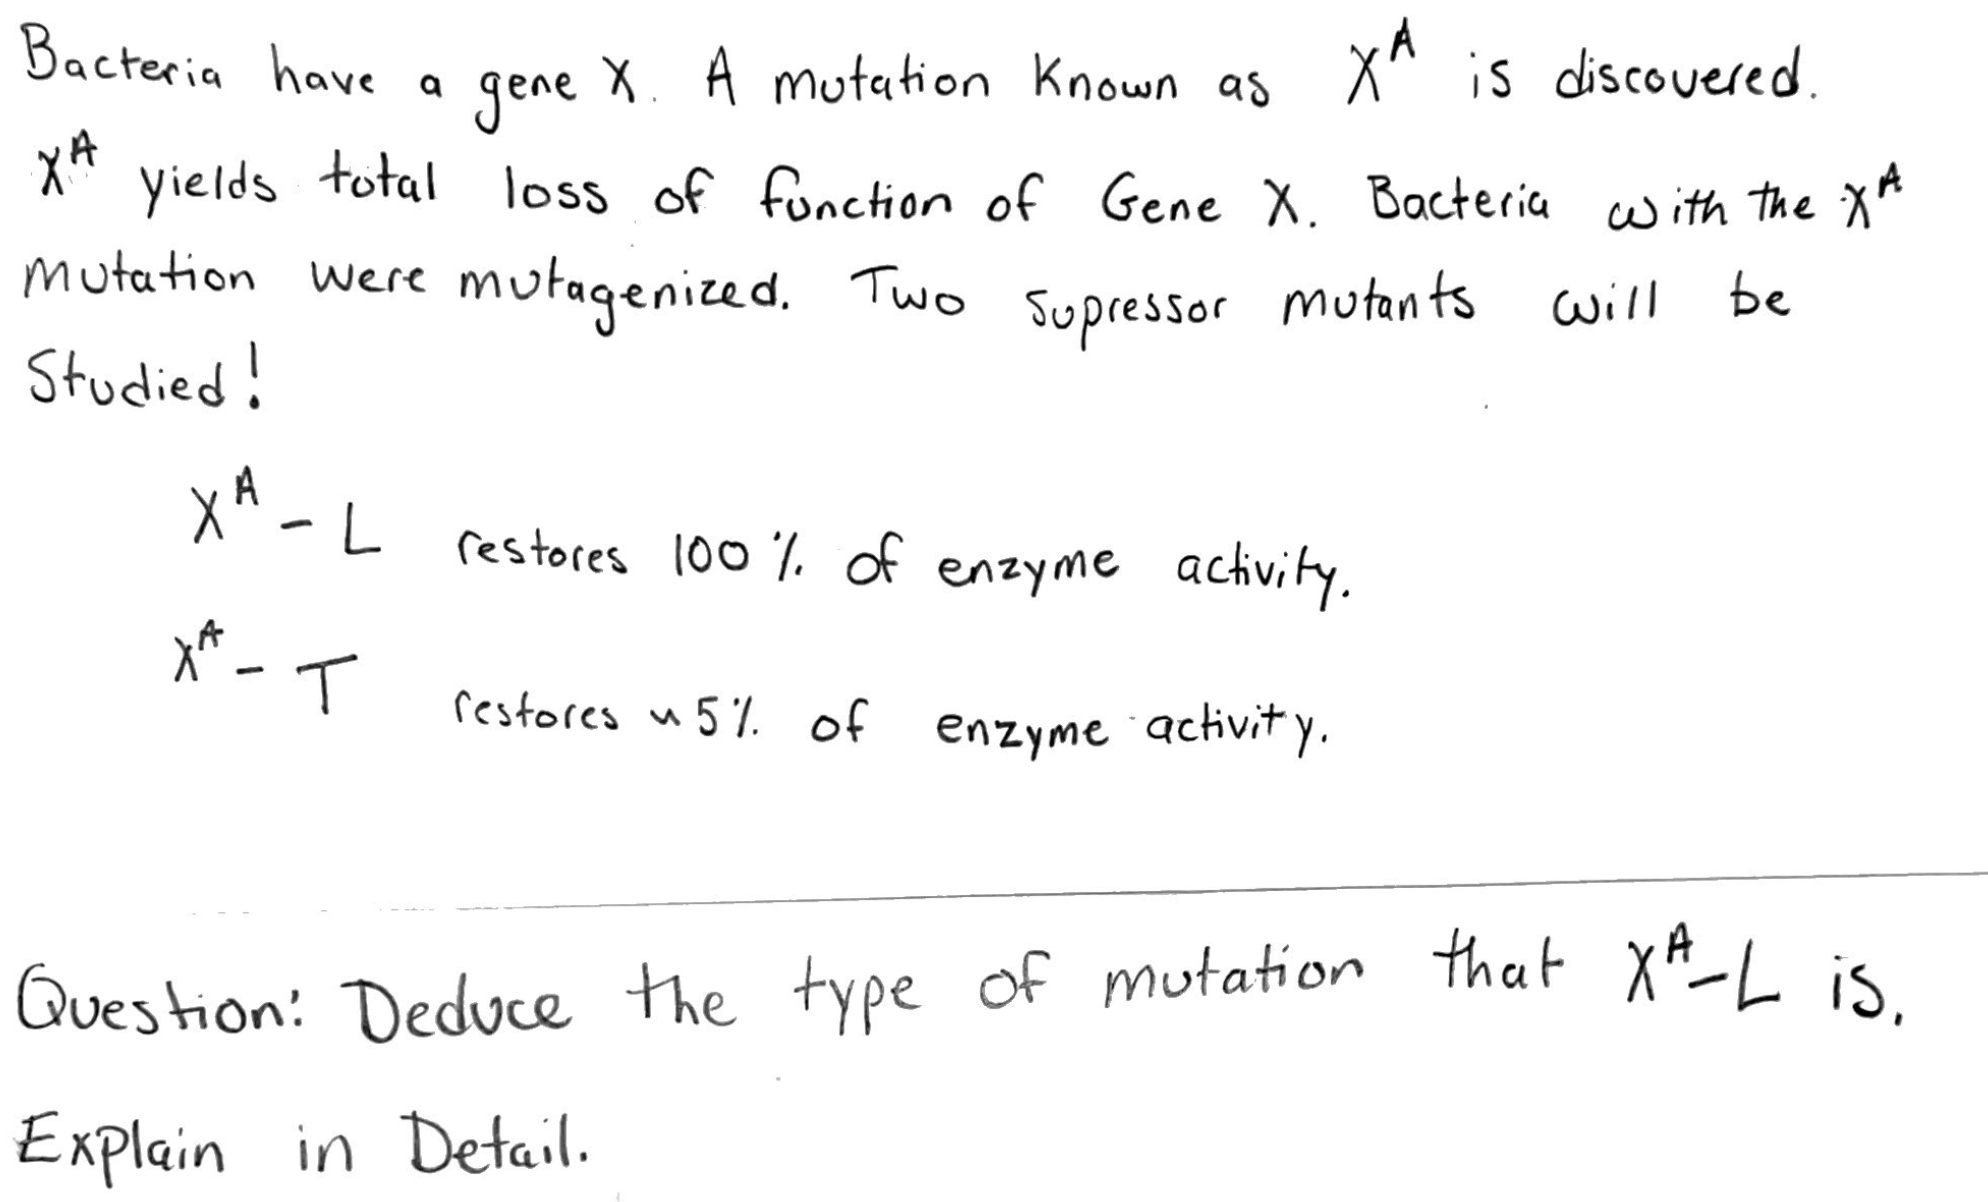 Bacteria have a gene X. A mutation Known as X^A is discovered.
X^A yields total loss of function of Gene X. Bacteria with the X^A
mutation were mutagenized. Two supressor mutants will be
Studied!
X^A - L restores 100 % of enzyme activity.
X^A - T restores ~ 5% of enzyme activity.
Question: Deduce the type of mutation that X^A-L is.
Explain in Detail.